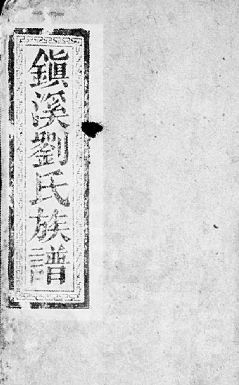 鎭溪劉氏族譜